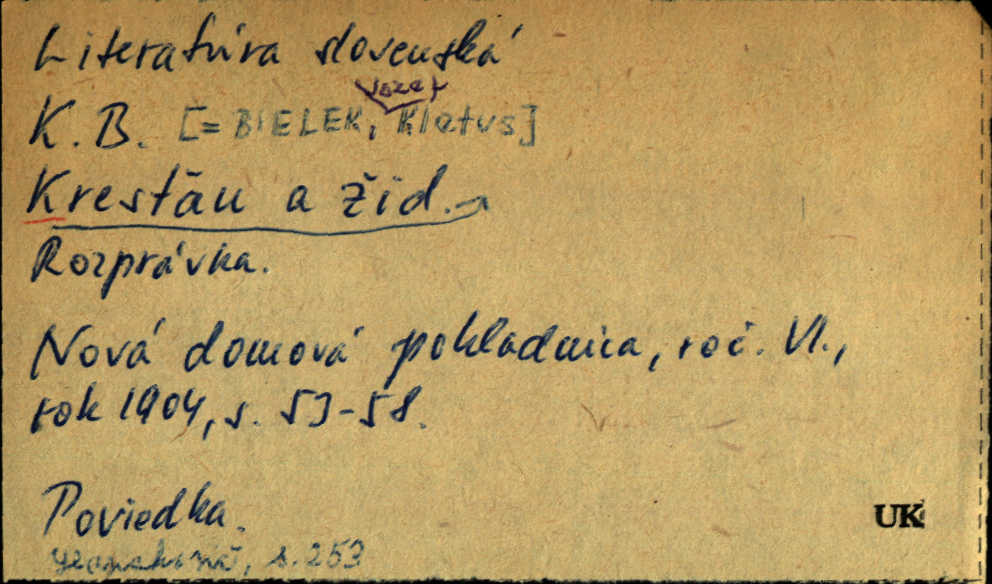 Literatúra slovenská
Jozef
K. B. [= BIELEK, Kletus]
Kresťan a žid.
Rozprávka.
Nová domová pokladnica, roč. VI.,
rok 1904, s. 53-58.
Poviedka.
UK
s. 253